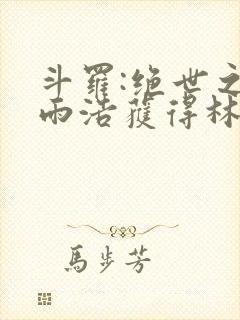 斗羅:绝世之
雨浩獲得林
馬步芳